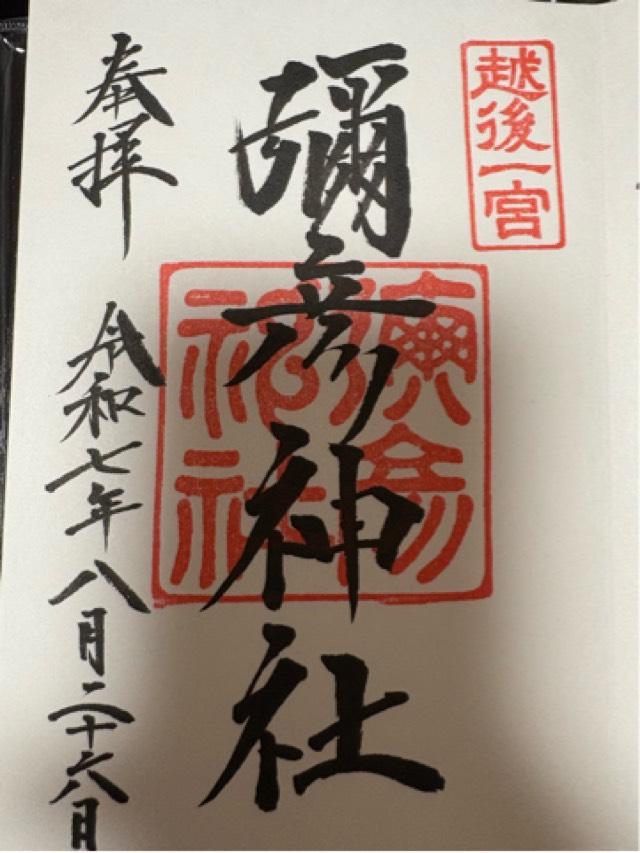 越後一宮
彌彦神社
彌彦
神社
奉拝
令和七年八月二十六日